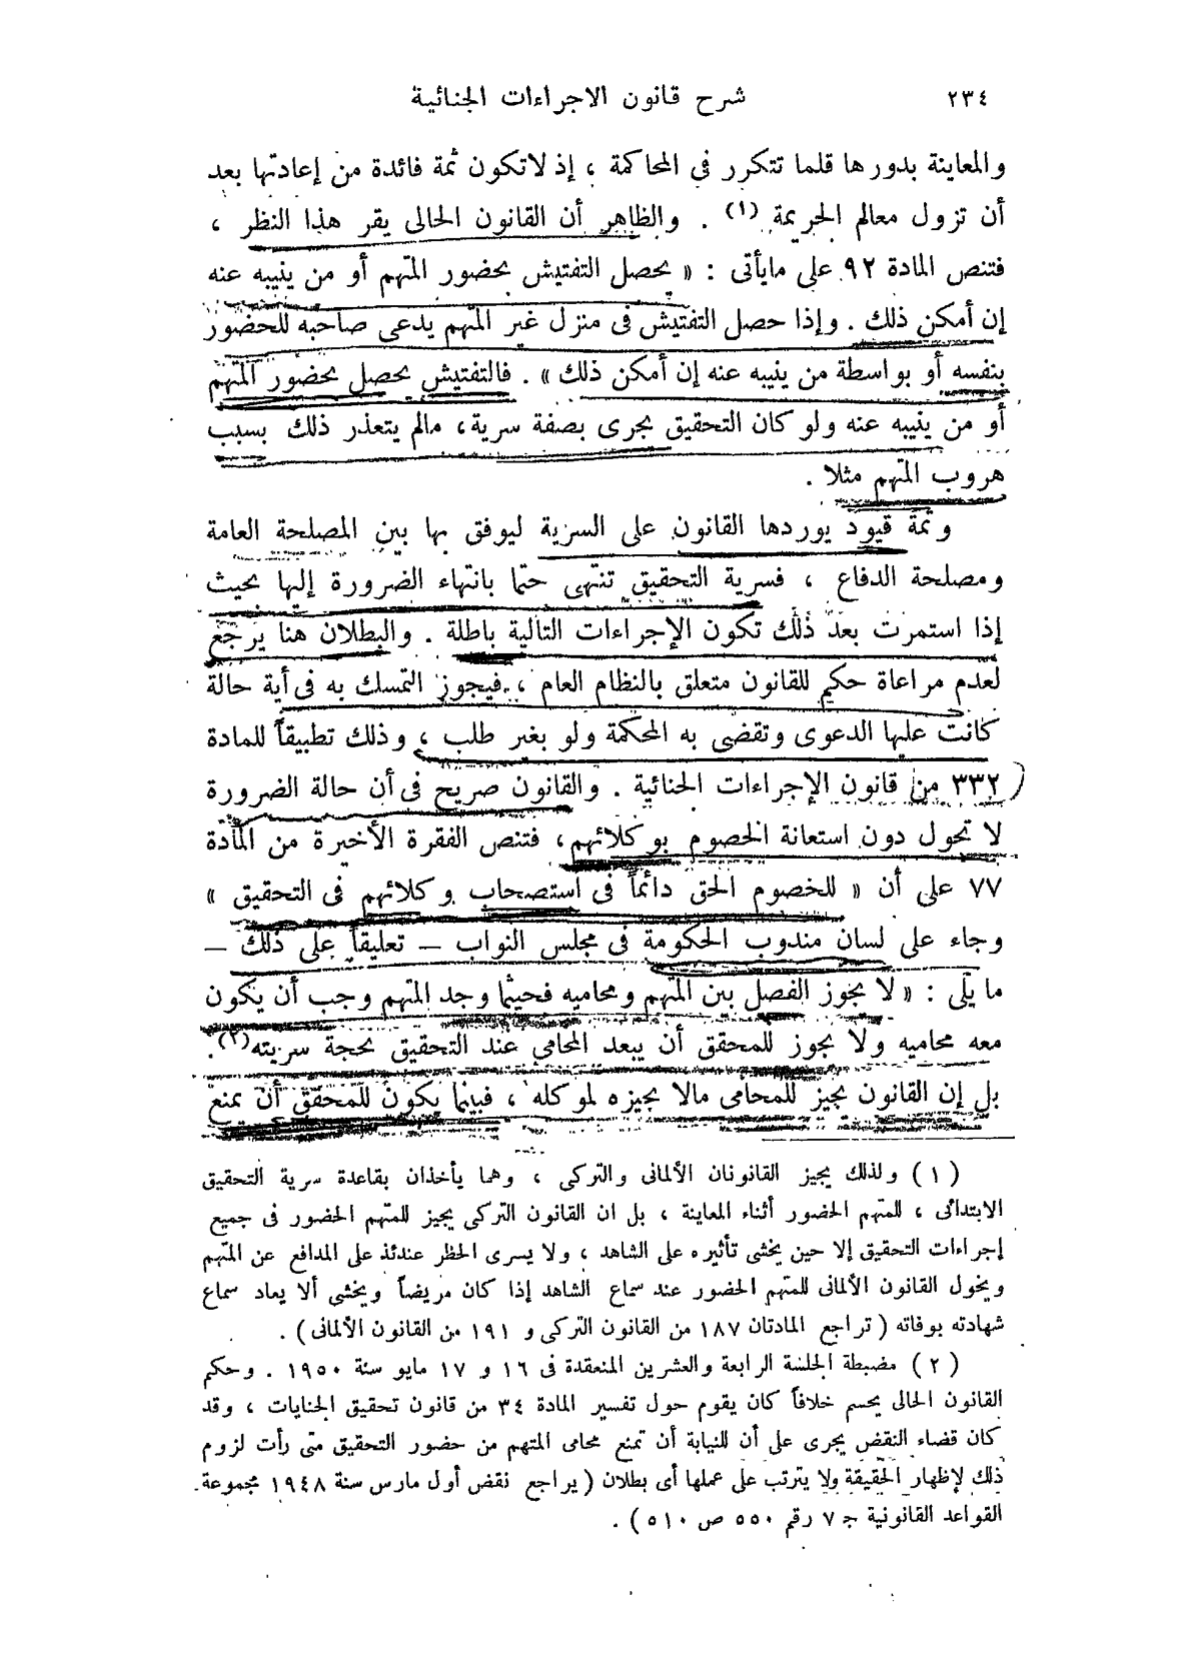 ٢٣٤ شرح قانون الاجراءات الجنائية
والمعاينة بدورها قلما تتكرر فى المحاكمة ، إذ لاتكون ثمة فائدة من إعادتها بعد
أن تزول معالم الجريمة (١) . والظاهر أن القانون الحالى يقر هذا النظر ،
فتنص المادة ٩٢ على مايأتى : « يحصل التفتيش بحضور المتهم أو من ينيبه عنه
إن أمكن ذلك . وإذا حصل التفتيش فى منزل غير المتهم يدعى صاحبه للحضور
بنفسه أو بواسطة من ينيبه عنه إن أمكن ذلك » . فالتفتيش يحصل بحضور المتهم
أو من ينيبه عنه ولو كان التحقيق يجرى بصفة سرية ، مالم يتعذر ذلك بسبب
هروب المتهم مثلا .
وثمة قيود يوردها القانون على السرية ليوفق بها بين المصلحة العامة
ومصلحة الدفاع ، فسرية التحقيق تنتهى حتما بانتهاء الضرورة إليها بحيث
إذا استمرت بعد ذلك تكون الإجراءات التالية باطلة . والبطلان هنا يرجع
لعدم مراعاة حكم للقانون متعلق بالنظام العام ، فيجوز التمسك به فى أية حالة
كانت عليها الدعوى وتقضى به المحكمة ولو بغير طلب ، وذلك تطبيقاً للمادة
٣٣٢ من قانون الإجراءات الجنائية . والقانون صريح فى أن حالة الضرورة
لا تحول دون استعانة الخصوم بوكلائهم ، فتنص الفقرة الأخيرة من المادة
٧٧ على أن « للخصوم الحق دائماً فى استصحاب وكلائهم فى التحقيق »
وجاء على لسان مندوب الحكومة فى مجلس النواب – تعليقاً على ذلك –
ما يلى : « لا يجوز الفصل بين المتهم ومحاميه فحيثما وجد المتهم وجب أن يكون
معه محاميه ولا يجوز للمحقق أن يبعد المحامى عند التحقيق بحجة سريته(٢).
بل إن القانون يجيز للمحامى مالا يجيزه لموكله ، فبينما يكون للمحقق أن يمنع
(١) ولذلك يجيز القانونان الألمانى والتركى ، وهما يأخذان بقاعدة سرية التحقيق
الابتدائى ، للمتهم الحضور أثناء المعاينة ، بل ان القانون التركى يجيز للمتهم الحضور فى جميع
إجراءات التحقيق إلا حين يخشى تأثيره على الشاهد ، ولا يسرى الحظر عندئذ على المدافع عن المتهم
ويخول القانون الألمانى للمتهم الحضور عند سماع الشاهد إذا كان مريضاً ويخشى ألا يعاد سماع
شهادته بوفاته ( تراجع المادتان ١٨٧ من القانون التركى و ١٩١ من القانون الألمانى ) .
(٢) مضبطة الجلسة الرابعة والعشرين المنعقدة فى ١٦ و ١٧ مايو سنة ١٩٥٠ . وحكم
القانون الحالى يحسم خلافاً كان يقوم حول تفسير المادة ٣٤ من قانون تحقيق الجنايات ، وقد
كان قضاء النقض يجرى على أن للنيابة أن تمنع محامى المتهم من حضور التحقيق متى رأت لزوم
ذلك لإظهار الحقيقة ولا يترتب على عملها أى بطلان ( يراجع نقض أول مارس سنة ١٩٤٨ مجموعة
القواعد القانونية ج ٧ رقم ٥٥٠ ص ٥١٠ ) .